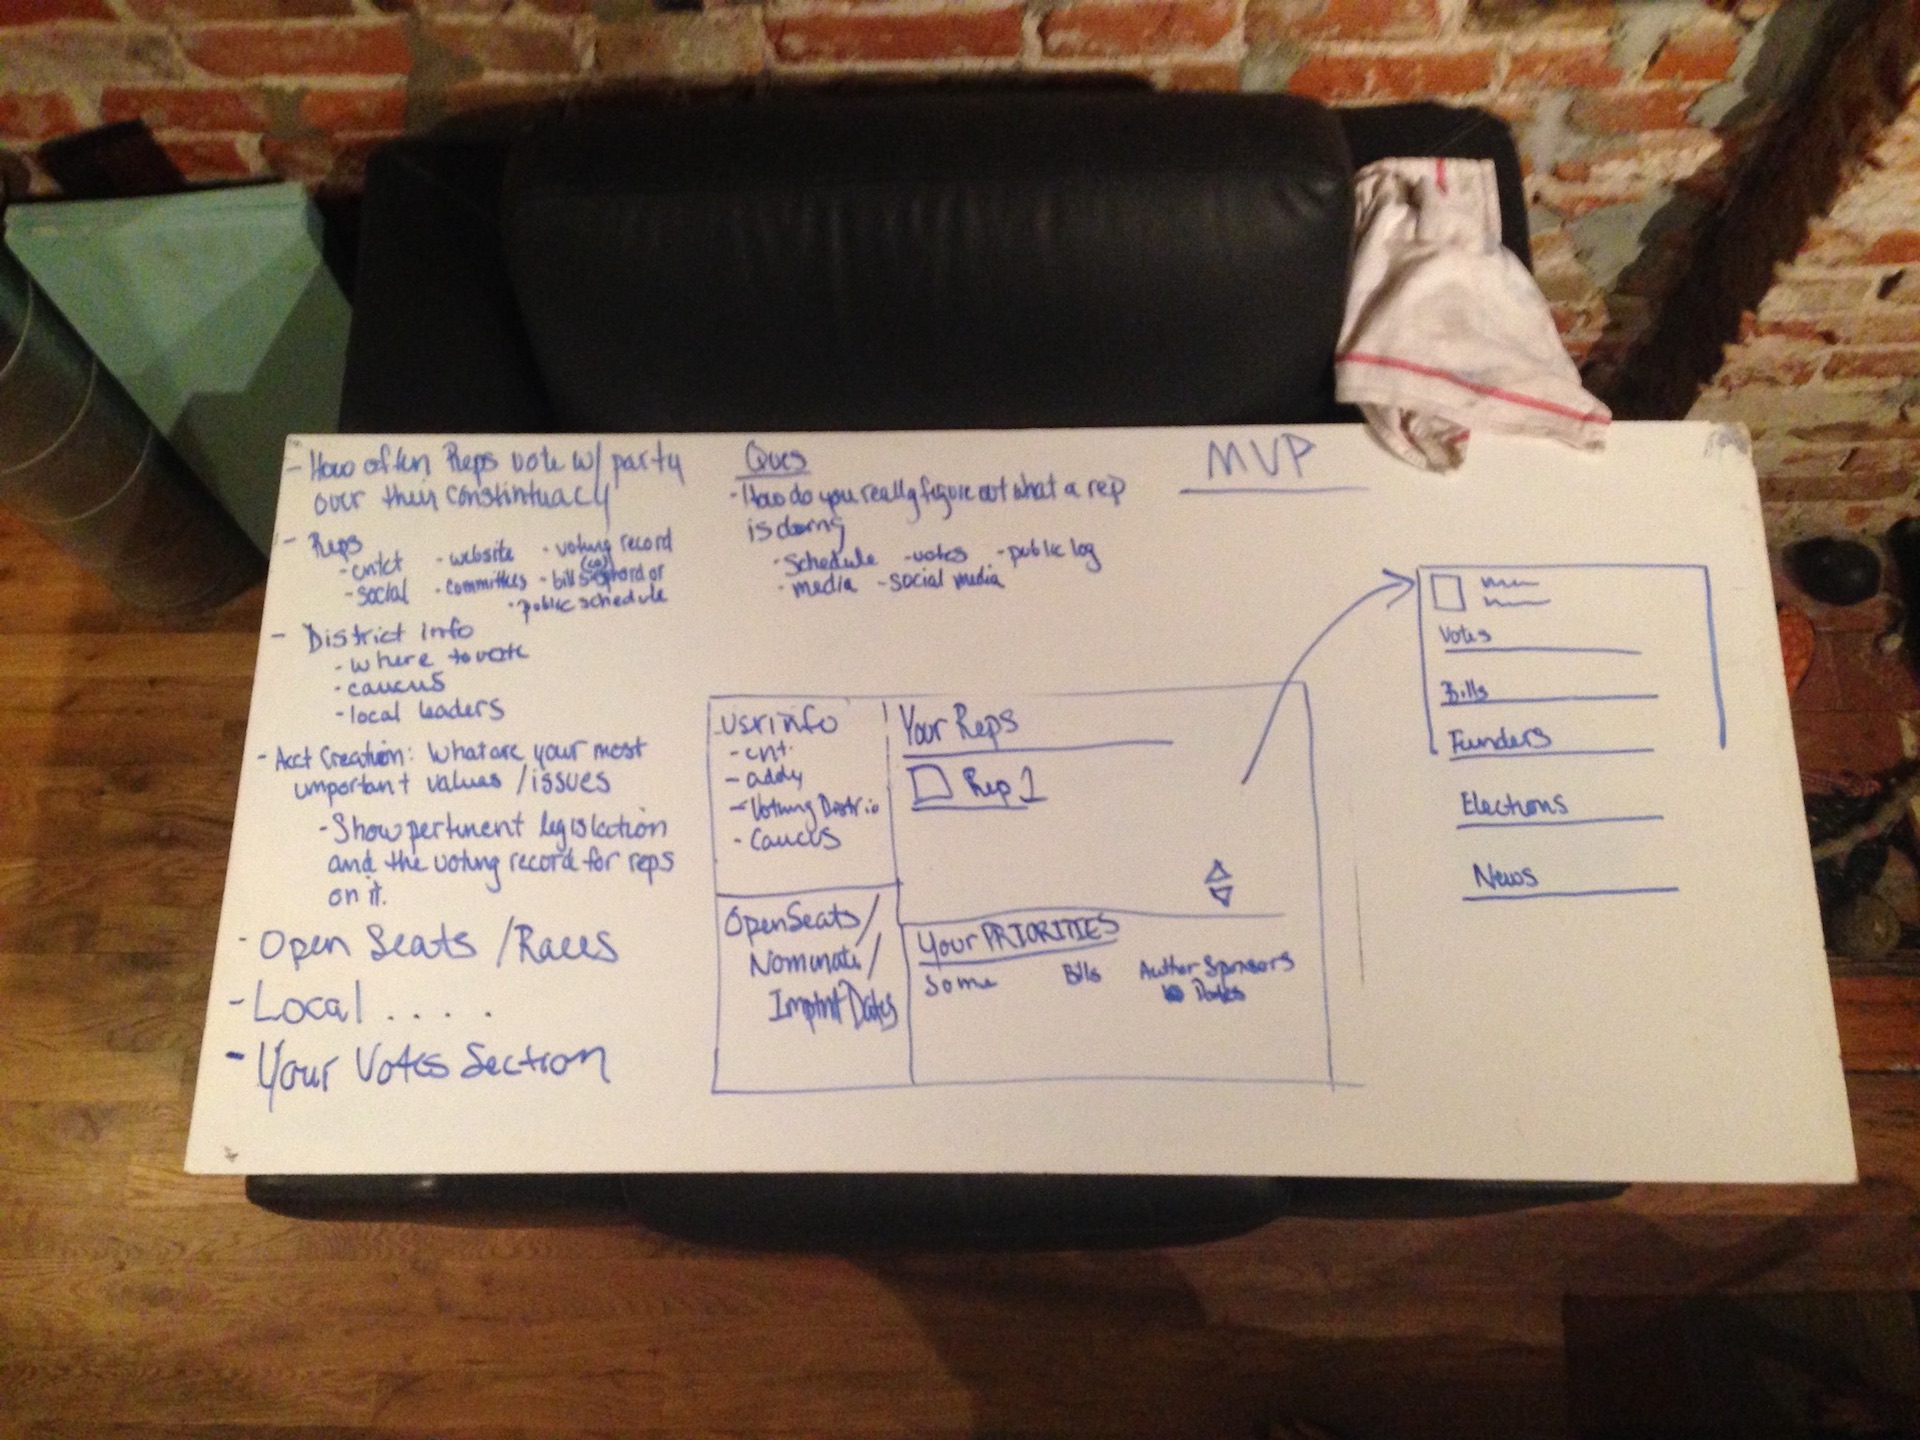 - How often Reps vote w/ party
over their constintuacy
- Reps
- cntct - website - voting record
- social - committees - bills (co) spnord or
- public schedule
- District Info
- where to vote
- caucus
- local leaders
- Acct Creation: What are your most
important values / issues
- Show pertinent legislation
and the voting record for reps
on it.
- Open Seats / Races
- Local . . . .
- Your Votes Section
Ques
- How do you really figure out what a rep
is doing
- Schedule - votes - public log
- media - social media
MVP
usr info
- cnt.
- addy
- Voting District
- Caucus
Open Seats /
Nominate /
Imptnt Dates
Your Reps
Rep 1
Your PRIORITIES
Some Bills Author Sponsors
Dates
Votes
Bills
Funders
Elections
News